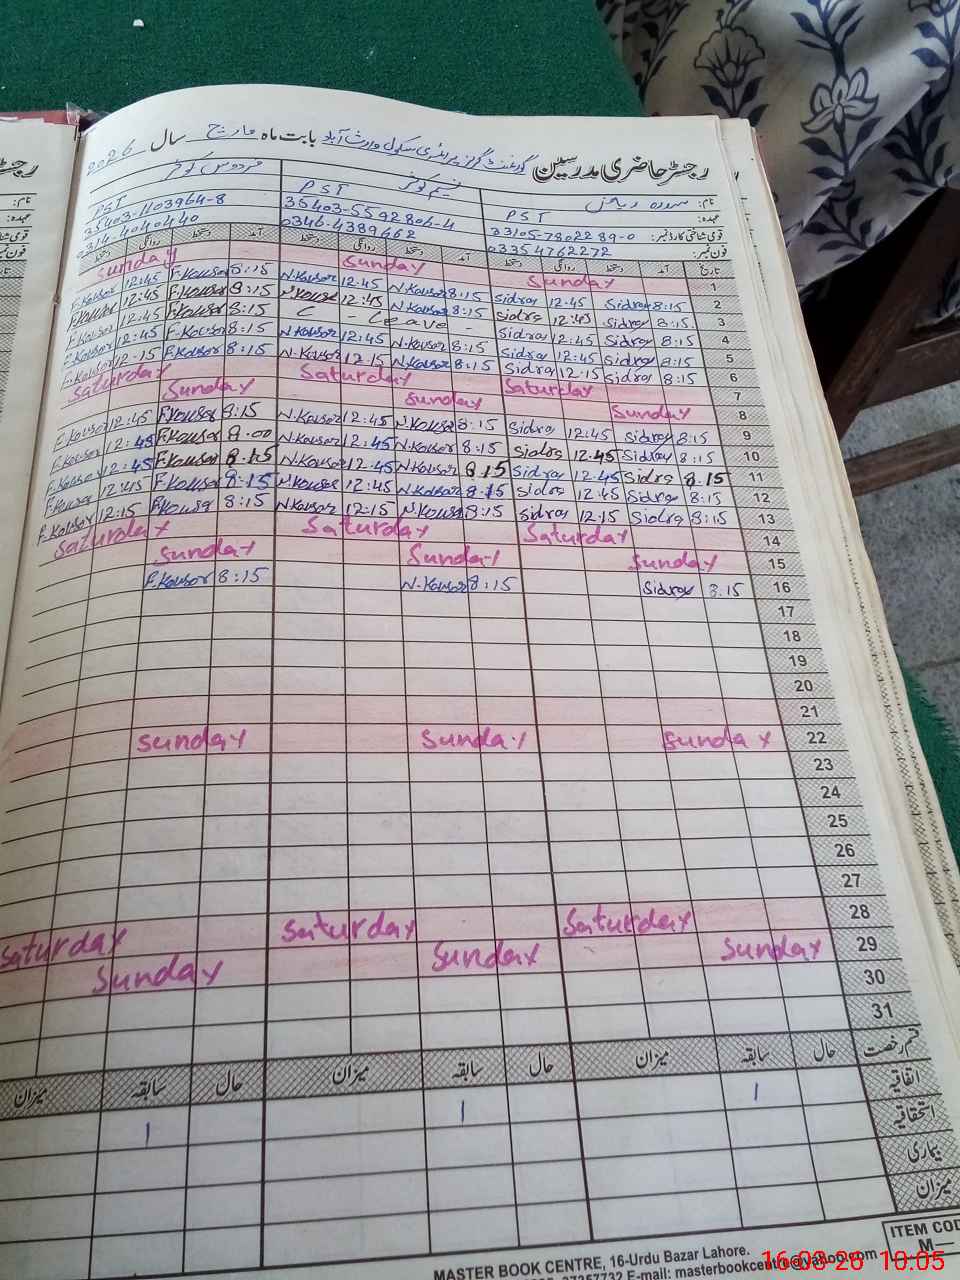 رجسٹر حاضری مدرسین گورنمنٹ گرلز پرائمری سکول وارث آباد بابت ماہ مارچ سال 2026
نام: سدرہ ریاض نسیم کوثر فردوس کوثر
عہدہ: PST PST PST
قومی شناختی کارڈ نمبر: 33105-7802289-0 35403-5592804-4 35403-1103964-8
فون نمبر: 03354762272 0346-4389662 0314-4040440
تاریخ آمد دستخط روانگی دستخط آمد دستخط روانگی دستخط آمد دستخط روانگی دستخط
1 Sunday Sunday Sunday
2 8:15 Sidray 12:45 Sidra 8:15 N.Kousor 12:45 N.Kousor 8:15 F.Kousor 12:45 F.Kousor
3 8:15 Sidray 12:45 Sidra 8:15 N.Kousor 12:45 N.Kousor 8:15 F.Kousor 12:45 F.Kousor
4 8:15 Sidray 12:45 Sidra - Leave - 8:15 F.Kousor 12:45 F.Kousor
5 8:15 Sidray 12:45 Sidra 8:15 N.Kousor 12:45 N.Kousor 8:15 F.Kousor 12:45 F.Kousor
6 8:15 Sidray 12:15 Sidra 8:15 N.Kousor 12:15 N.Kousor 8:15 F.Kousor 12:15 F.Kousor
7 Saturday Saturday Saturday
8 Sunday Sunday Sunday
9 8:15 Sidray 12:45 Sidra 8:15 N.Kousor 12:45 N.Kousor 8:15 F.Kousor 12:45 F.Kousor
10 8:15 Sidray 12:45 Sidra 8:15 N.Kousor 12:45 N.Kousor 8:00 F.Kousor 12:45 F.Kousor
11 8:15 Sidra 12:45 Sidray 8:15 N.Kousor 12:45 N.Kousor 8:15 F.Kousor 12:45 F.Kousor
12 8:15 Sidra 12:45 Sidra 8:15 N.Kousor 12:45 N.Kousor 8:15 F.Kousor 12:45 F.Kousor
13 8:15 Sidra 12:15 Sidray 8:15 N.Kousor 12:15 N.Kousor 8:15 F.Kousor 12:15 F.Kousor
14 Saturday Saturday Saturday
15 Sunday Sunday Sunday
16 8:15 Sidray 8:15 N.Kousor 8:15 F.Kousor
17
18
19
20
21
22 Sunday Sunday Sunday
23
24
25
26
27
28 Saturday Saturday Saturday
29 Sunday Sunday Sunday
30
31
قسم رخصت حال سابقہ میزان حال سابقہ میزان حال سابقہ میزان
اتفاقیہ 1 1 1
استحقاقیہ
بیماری
میزان
ITEM COD
M—
MASTER BOOK CENTRE, 16-Urdu Bazar Lahore.
37357732 E-mail: masterbookcentre@yahoo.com
16-03-26 10:05